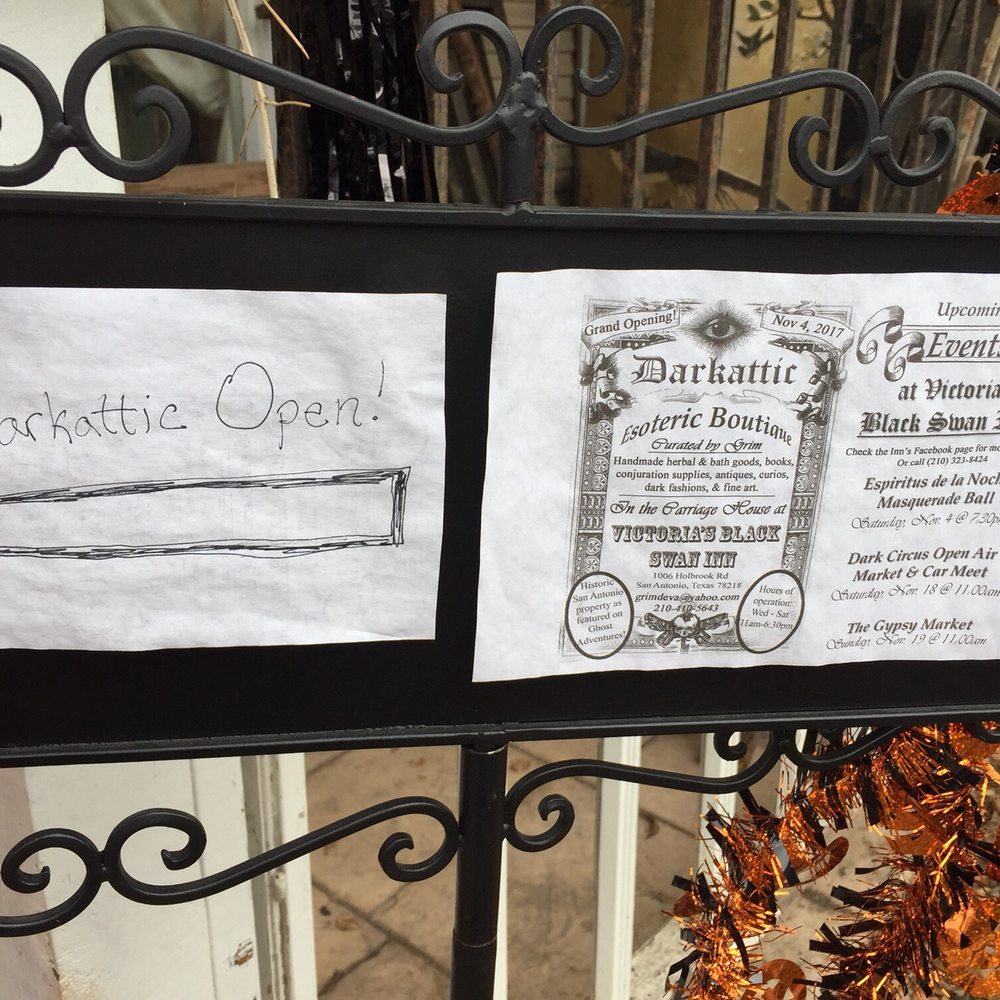 arkattic Open!
Grand Opening!
Nov 4, 2017
Darkattic
Esoteric Boutique
Curated by Grim
Handmade herbal & bath goods, books,
conjuration supplies, antiques, curios,
dark fashions, & fine art.
In the Carriage House at
VICTORIA'S BLACK
SWAN INN
1006 Holbrook Rd
San Antonio, Texas 78218
grimdeva@yahoo.com
210-410-5643
Historic
San Antonio
property as
featured on
Ghost
Adventures!
Hours of
operation:
Wed - Sat
11am-6:30pm
Upcomin
Events
at Victoria
Black Swan
Check the Inn's Facebook page for mo
Or call (210) 323-8424
Espiritus de la Noch
Masquerade Ball
Saturday, Nov. 4 @ 7:30p
Dark Circus Open Air
Market & Car Meet
Saturday, Nov. 18 @ 11:00am
The Gypsy Market
Sunday, Nov. 19 @ 11:00am